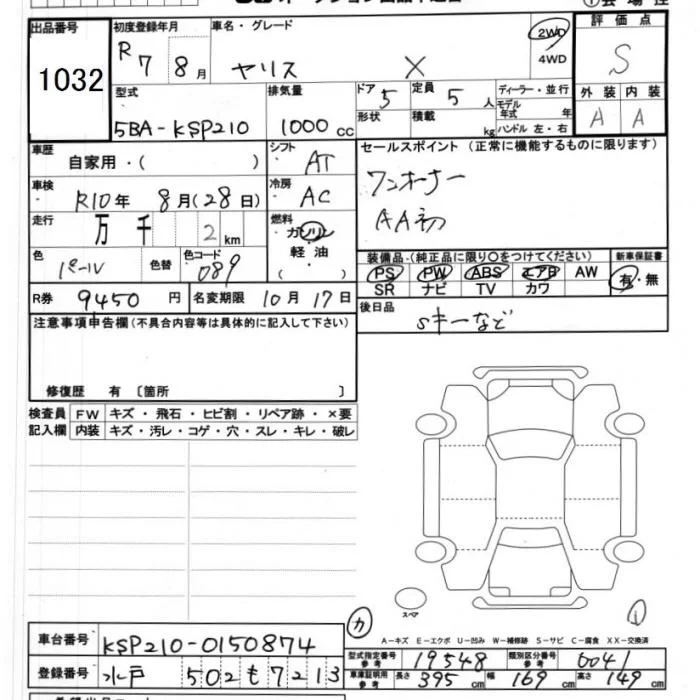 オークション出品申込書
出品番号 1032
初度登録年月 R 7年 8月
車名・グレード ヤリス X
2WD
4WD
評価点 S
外装 A 内装 A
型式 5BA-KSP210
排気量 1000 cc
ドア 5 定員 5 人
形状 積載 kg
ディーラー・並行
モデル年式 年
ハンドル 左・右
車歴 自家用・( )
シフト AT
セールスポイント (正常に機能するものに限ります)
ワンオーナー
AA初
車検 R10年 8月(28日)
冷房 AC
走行 万 千 2 km
燃料 ガソリン
軽油
( ・ )
色 パール 色替 色コード 089
装備品 (純正品に限り○をつけてください)
PS PW ABS エアB AW
SR ナビ TV カワ
新車保証書 有・無
R券 9450 円 名変期限 10月 17日
後日品 Sキーなど
注意事項申告欄 (不具合内容等は具体的に記入して下さい)
修復歴 有 〔箇所 〕
検査員記入欄 FW キズ・飛石・ヒビ割・リペア跡・×要
内装 キズ・汚レ・コゲ・穴・スレ・キレ・破レ
スペア
カ
A-キズ E-エクボ U-凹み W-補修跡 S-サビ C-腐食 XX-交換済
車台番号 KSP210-0150874
登録番号 水戸 502 も 7213
型式指定番号 参考 19548 類別区分番号 参考 0041
車庫証明用 参考 長さ 395 cm 幅 169 cm 高さ 149 cm